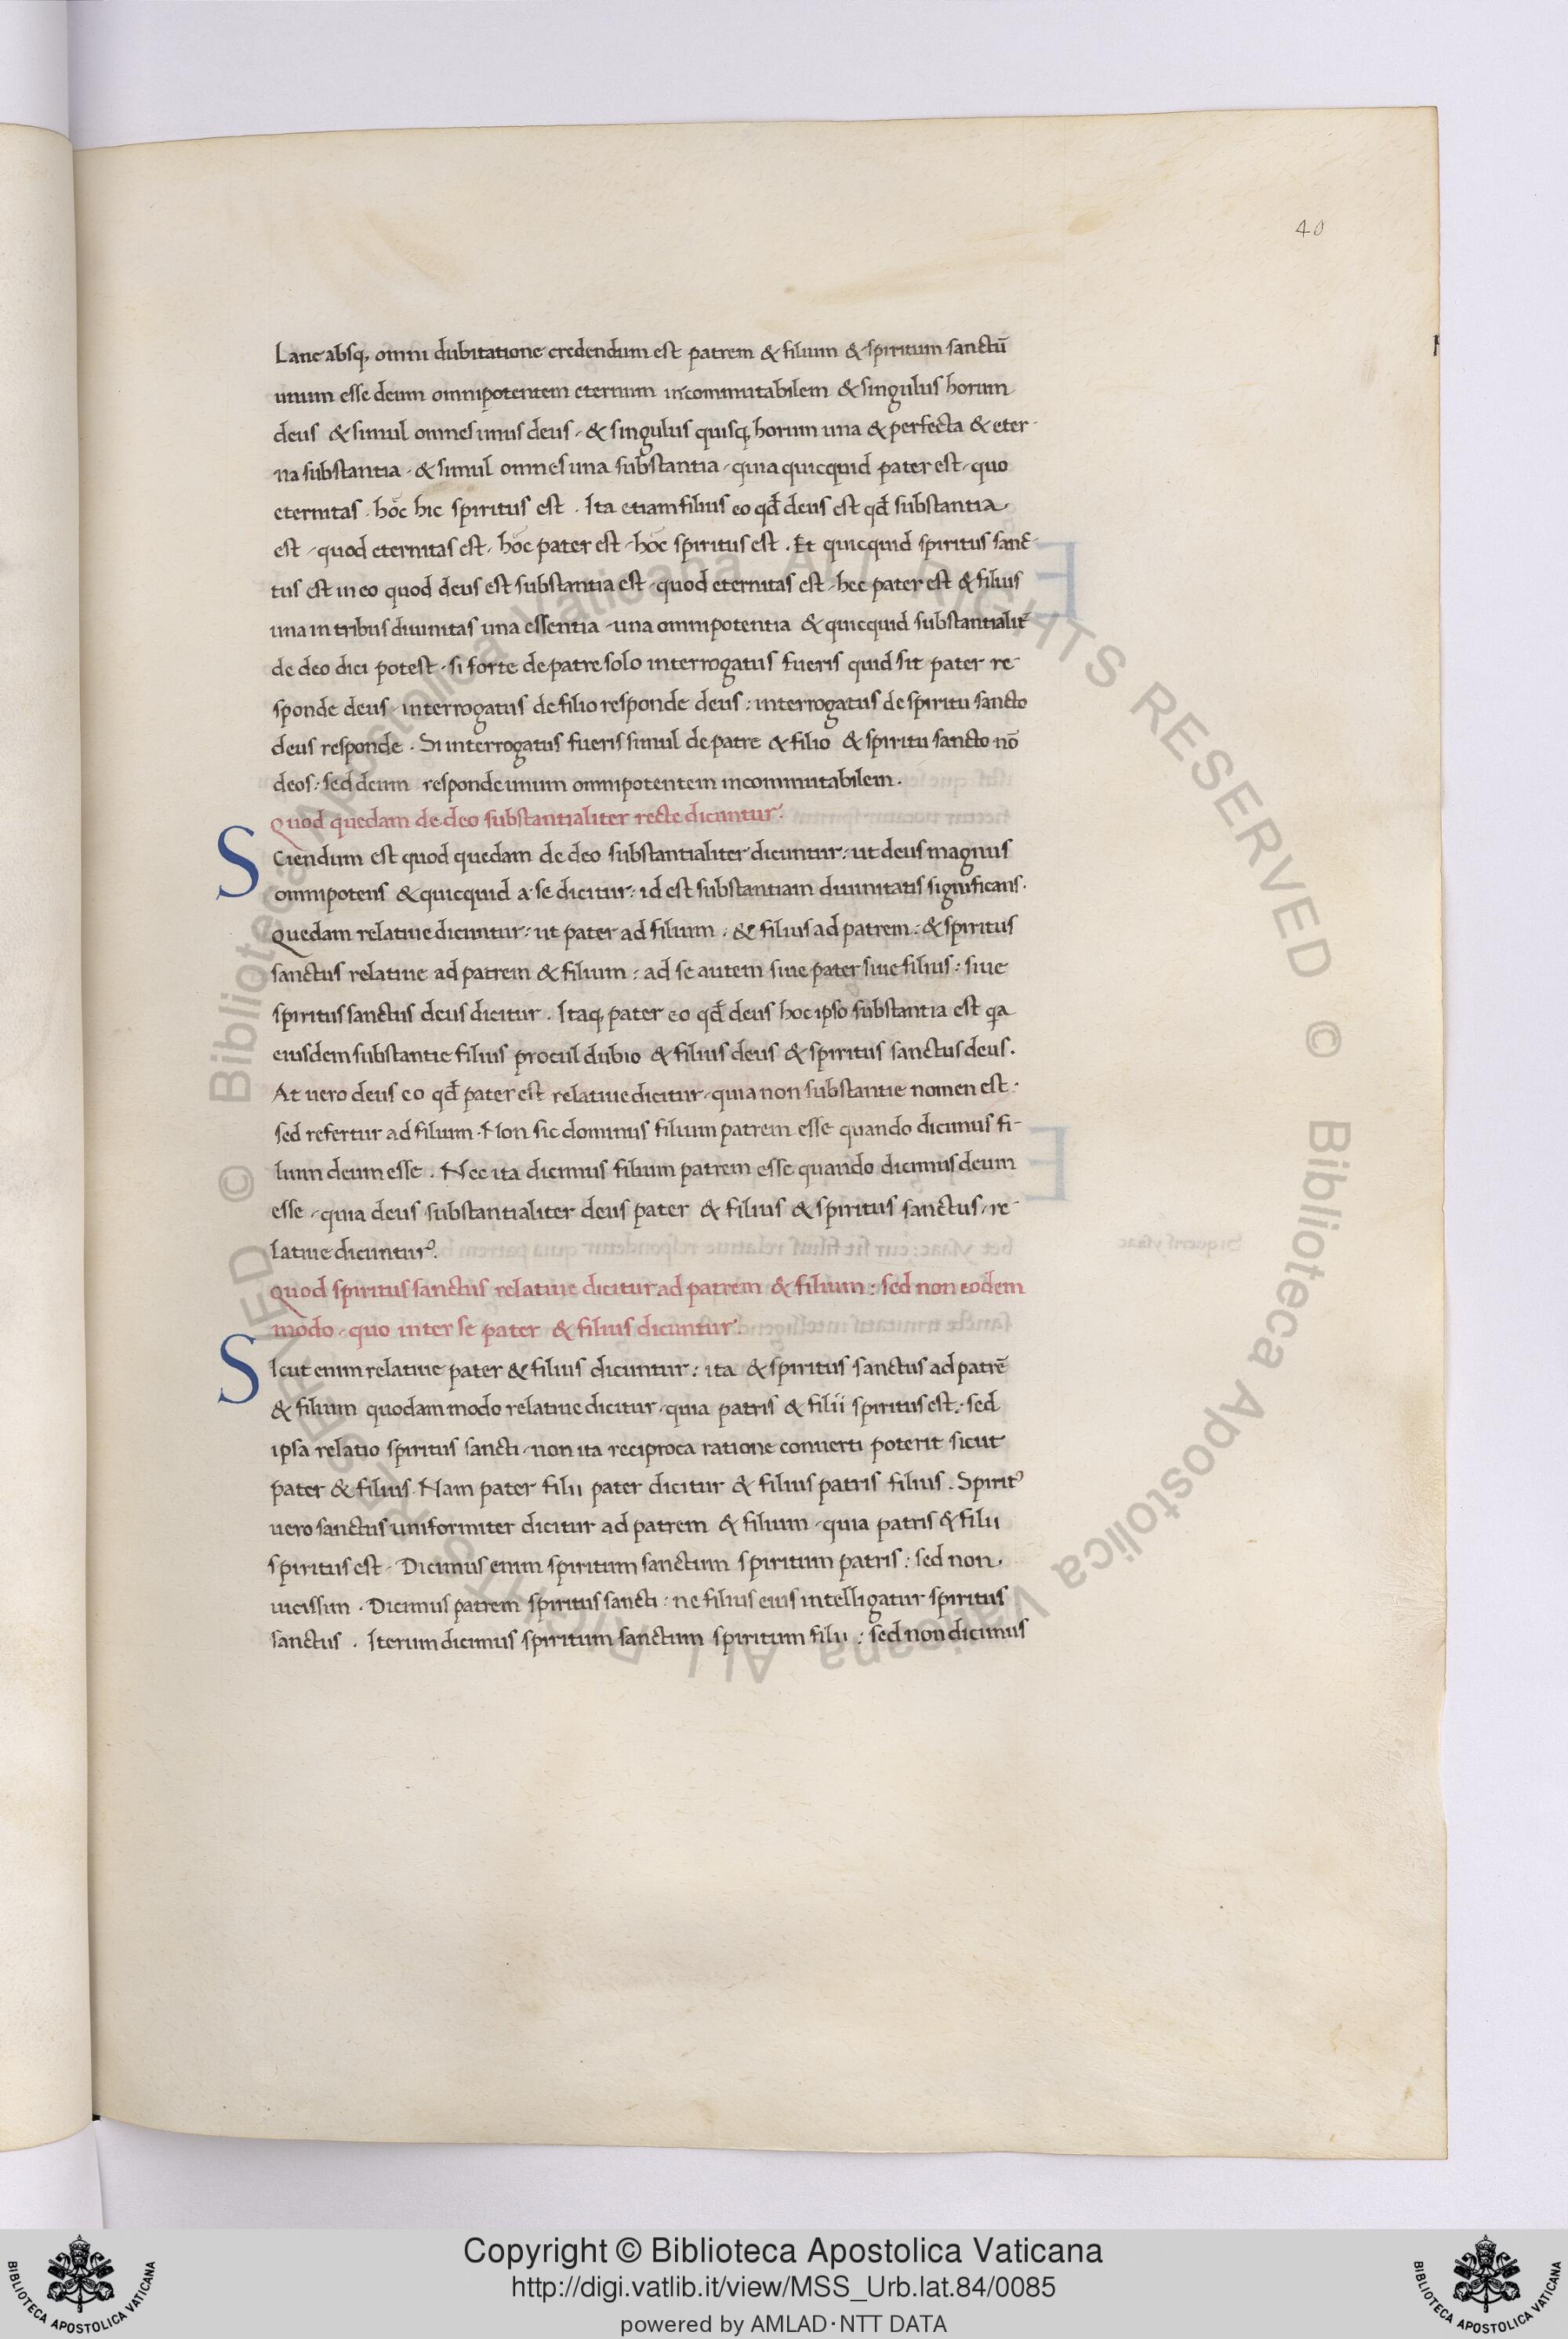 40
Lane absq; omni dubitatione credendum est patrem & filium & spiritum sanctū
unum esse deum omnipotentem eternum incommutabilem & singulus horum
deus & simul omnes unus deus & singulus quisq; horum una & perfecta & eter-
na substantia & simul omnes una substantia quia quicquid pater est quo
eternitas hoc hic spiritus est. Ita etiam filius eo qđ deus est qđ substantia
est quod eternitas est hoc pater est hoc spiritus est. Et quicquid spiritus sanc-
tus est in eo quod deus est substantia est quod eternitas est hec pater est & filius
una in tribus diuinitas una essentia una omnipotentia & quicquid substantialit̄
de deo dici potest. si forte de patre solo interrogatus fueris quid sit pater re-
sponde deus interrogatus de filio responde deus: interrogatus de spiritu sancto
deus responde. Si interrogatus fueris simul de patre & filio & spiritu sancto nō
deos: sed deum responde unum omnipotentem incommutabilem.
Quod quedam de deo substantialiter recte dicuntur.
SCiendum est quod quedam de deo substantialiter dicuntur: ut deus magnus
omnipotens & quicquid a se dicitur: id est substantiam diuinitatis significans.
Quedam relatiue dicuntur: ut pater ad filium: & filius ad patrem: & spiritus
sanctus relatiue ad patrem & filium: ad se autem siue pater siue filius: siue
spiritus sanctus deus dicitur. Itaq; pater eo qđ deus hoc ipso substantia est qa
eiusdem substantie filius procul dubio & filius deus & spiritus sanctus deus.
At uero deus eo qđ pater est relatiue dicitur quia non substantie nomen est.
sed refertur ad filium. Non sic dominus filium patrem esse quando dicimus fi-
lium deum esse. Nec ita dicimus filium patrem esse quando dicimus deum
esse quia deus substantialiter deus pater & filius & spiritus sanctus re-
latiue dicuntur.
Quod spiritus sanctus relatiue dicitur ad patrem & filium: sed non eodem
modo quo inter se pater & filius dicuntur.
SIcut enim relatiue pater & filius dicuntur: ita & spiritus sanctus ad patrē
& filium quodammodo relatiue dicitur quia patris & filii spiritus est: sed
ipsa relatio spiritus sancti non ita reciproca ratione conuerti poterit sicut
pater & filius. Nam pater filii pater dicitur & filius patris filius. Spirit⁹
uero sanctus uniformiter dicitur ad patrem & filium quia patris & filii
spiritus est. Dicimus enim spiritum sanctum spiritum patris: sed non
uicissim. Dicimus patrem spiritus sancti: ne filius eius intelligatur spiritus
sanctus. Iterum dicimus spiritum sanctum spiritum filii: sed non dicimus
Copyright © Biblioteca Apostolica Vaticana
http://digi.vatlib.it/view/MSS_Urb.lat.84/0085
powered by AMLAD·NTT DATA